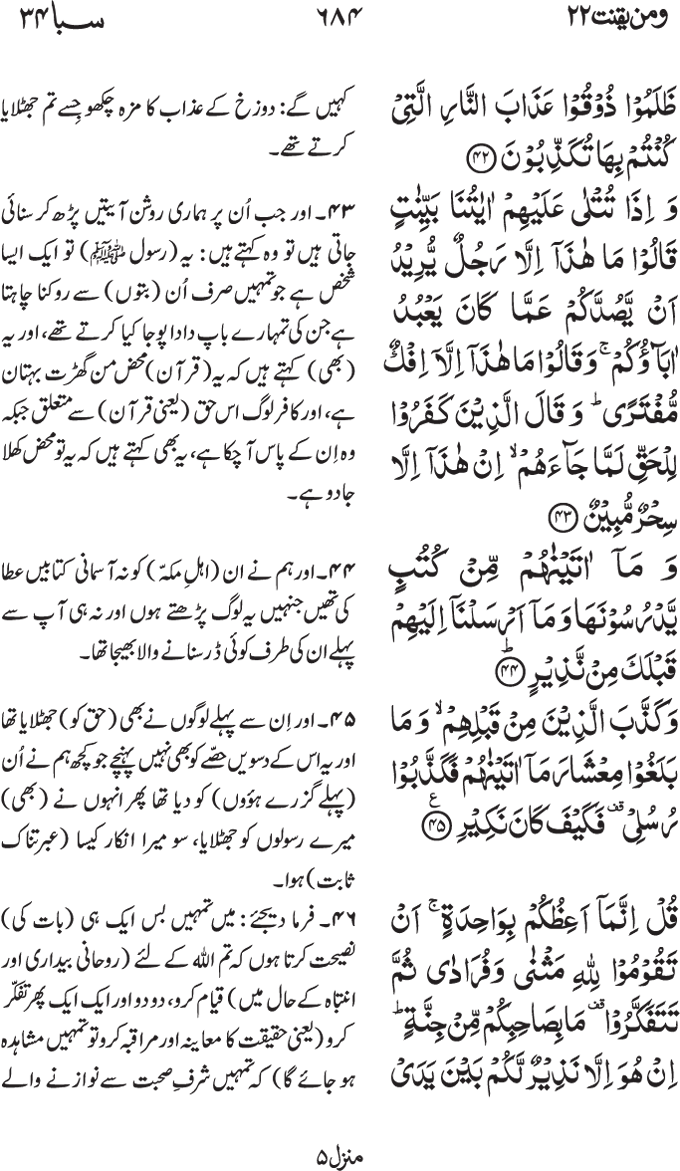 ومن یقنت ۲۲
۶۸۴
سبا ۳۴
ظَلَمُوۡا ذُوۡقُوۡا عَذَابَ النَّارِ الَّتِیۡ
کُنۡتُمۡ بِہَا تُکَذِّبُوۡنَ ﴿۴۲﴾
وَ اِذَا تُتۡلٰی عَلَیۡہِمۡ اٰیٰتُنَا بَیِّنٰتٍ
قَالُوۡا مَا ہٰذَاۤ اِلَّا رَجُلٌ یُّرِیۡدُ
اَنۡ یَّصُدَّکُمۡ عَمَّا کَانَ یَعۡبُدُ
اٰبَآؤُکُمۡ ۚ وَ قَالُوۡا مَا ہٰذَاۤ اِلَّاۤ اِفۡکٌ
مُّفۡتَرًی ؕ وَ قَالَ الَّذِیۡنَ کَفَرُوۡا
لِلۡحَقِّ لَمَّا جَآءَہُمۡ ۙ اِنۡ ہٰذَاۤ اِلَّا
سِحۡرٌ مُّبِیۡنٌ ﴿۴۳﴾
وَ مَاۤ اٰتَیۡنٰہُمۡ مِّنۡ کُتُبٍ
یَّدۡرُسُوۡنَہَا وَ مَاۤ اَرۡسَلۡنَاۤ اِلَیۡہِمۡ
قَبۡلَکَ مِنۡ نَّذِیۡرٍ ﴿ؕ۴۴﴾
وَ کَذَّبَ الَّذِیۡنَ مِنۡ قَبۡلِہِمۡ ۙ وَ مَا
بَلَغُوۡا مِعۡشَارَ مَاۤ اٰتَیۡنٰہُمۡ فَکَذَّبُوۡا
رُسُلِیۡ ۟ فَکَیۡفَ کَانَ نَکِیۡرِ ﴿٪۴۵﴾
قُلۡ اِنَّمَاۤ اَعِظُکُمۡ بِوَاحِدَۃٍ ۚ اَنۡ
تَقُوۡمُوۡا لِلّٰہِ مَثۡنٰی وَ فُرَادٰی ثُمَّ
تَتَفَکَّرُوۡا ۟ مَا بِصَاحِبِکُمۡ مِّنۡ جِنَّۃٍ ؕ
اِنۡ ہُوَ اِلَّا نَذِیۡرٌ لَّکُمۡ بَیۡنَ یَدَیۡ
کہیں گے: دوزخ کے عذاب کا مزہ چکھو جِسے تم جھٹلایا
کرتے تھے۔
۴۳۔ اور جب اُن پر ہماری روشن آیتیں پڑھ کر سنائی
جاتی ہیں تو وہ کہتے ہیں: یہ (رسول ﷺ) تو ایک ایسا
شخص ہے جو تمہیں صرف اُن (بتوں) سے روکنا چاہتا
ہے جن کی تمہارے باپ دادا پوجا کیا کرتے تھے، اور یہ
(بھی) کہتے ہیں کہ یہ (قرآن) محض من گھڑت بہتان
ہے، اور کافر لوگ اس حق (یعنی قرآن) سے متعلق جبکہ
وہ اِن کے پاس آچکا ہے، یہ بھی کہتے ہیں کہ یہ تو محض کھلا
جادو ہے۔
۴۴۔ اور ہم نے ان (اہلِ مکہّ) کو نہ آسمانی کتابیں عطا
کی تھیں جنہیں یہ لوگ پڑھتے ہوں اور نہ ہی آپ سے
پہلے ان کی طرف کوئی ڈر سنانے والا بھیجا تھا۔
۴۵۔ اور اِن سے پہلے لوگوں نے بھی (حق کو) جھٹلایا تھا
اور یہ اس کے دسویں حصّے کو بھی نہیں پہنچے جو کچھ ہم نے اُن
(پہلے گزرے ہؤوں) کو دیا تھا پھر انہوں نے (بھی)
میرے رسولوں کو جھٹلایا، سو میرا انکار کیسا (عبرتناک
ثابت) ہوا۔
۴۶۔ فرما دیجئے: میں تمہیں بس ایک ہی (بات کی)
نصیحت کرتا ہوں کہ تم اللہ کے لئے (روحانی بیداری اور
انتباہ کے حال میں) قیام کرو، دو دو اور ایک ایک پھر تفکّر
کرو (یعنی حقیقت کا معاینہ اور مراقبہ کرو تو تمہیں مشاہدہ
ہو جائے گا) کہ تمہیں شرفِ صحبت سے نوازنے والے
منزل ۵